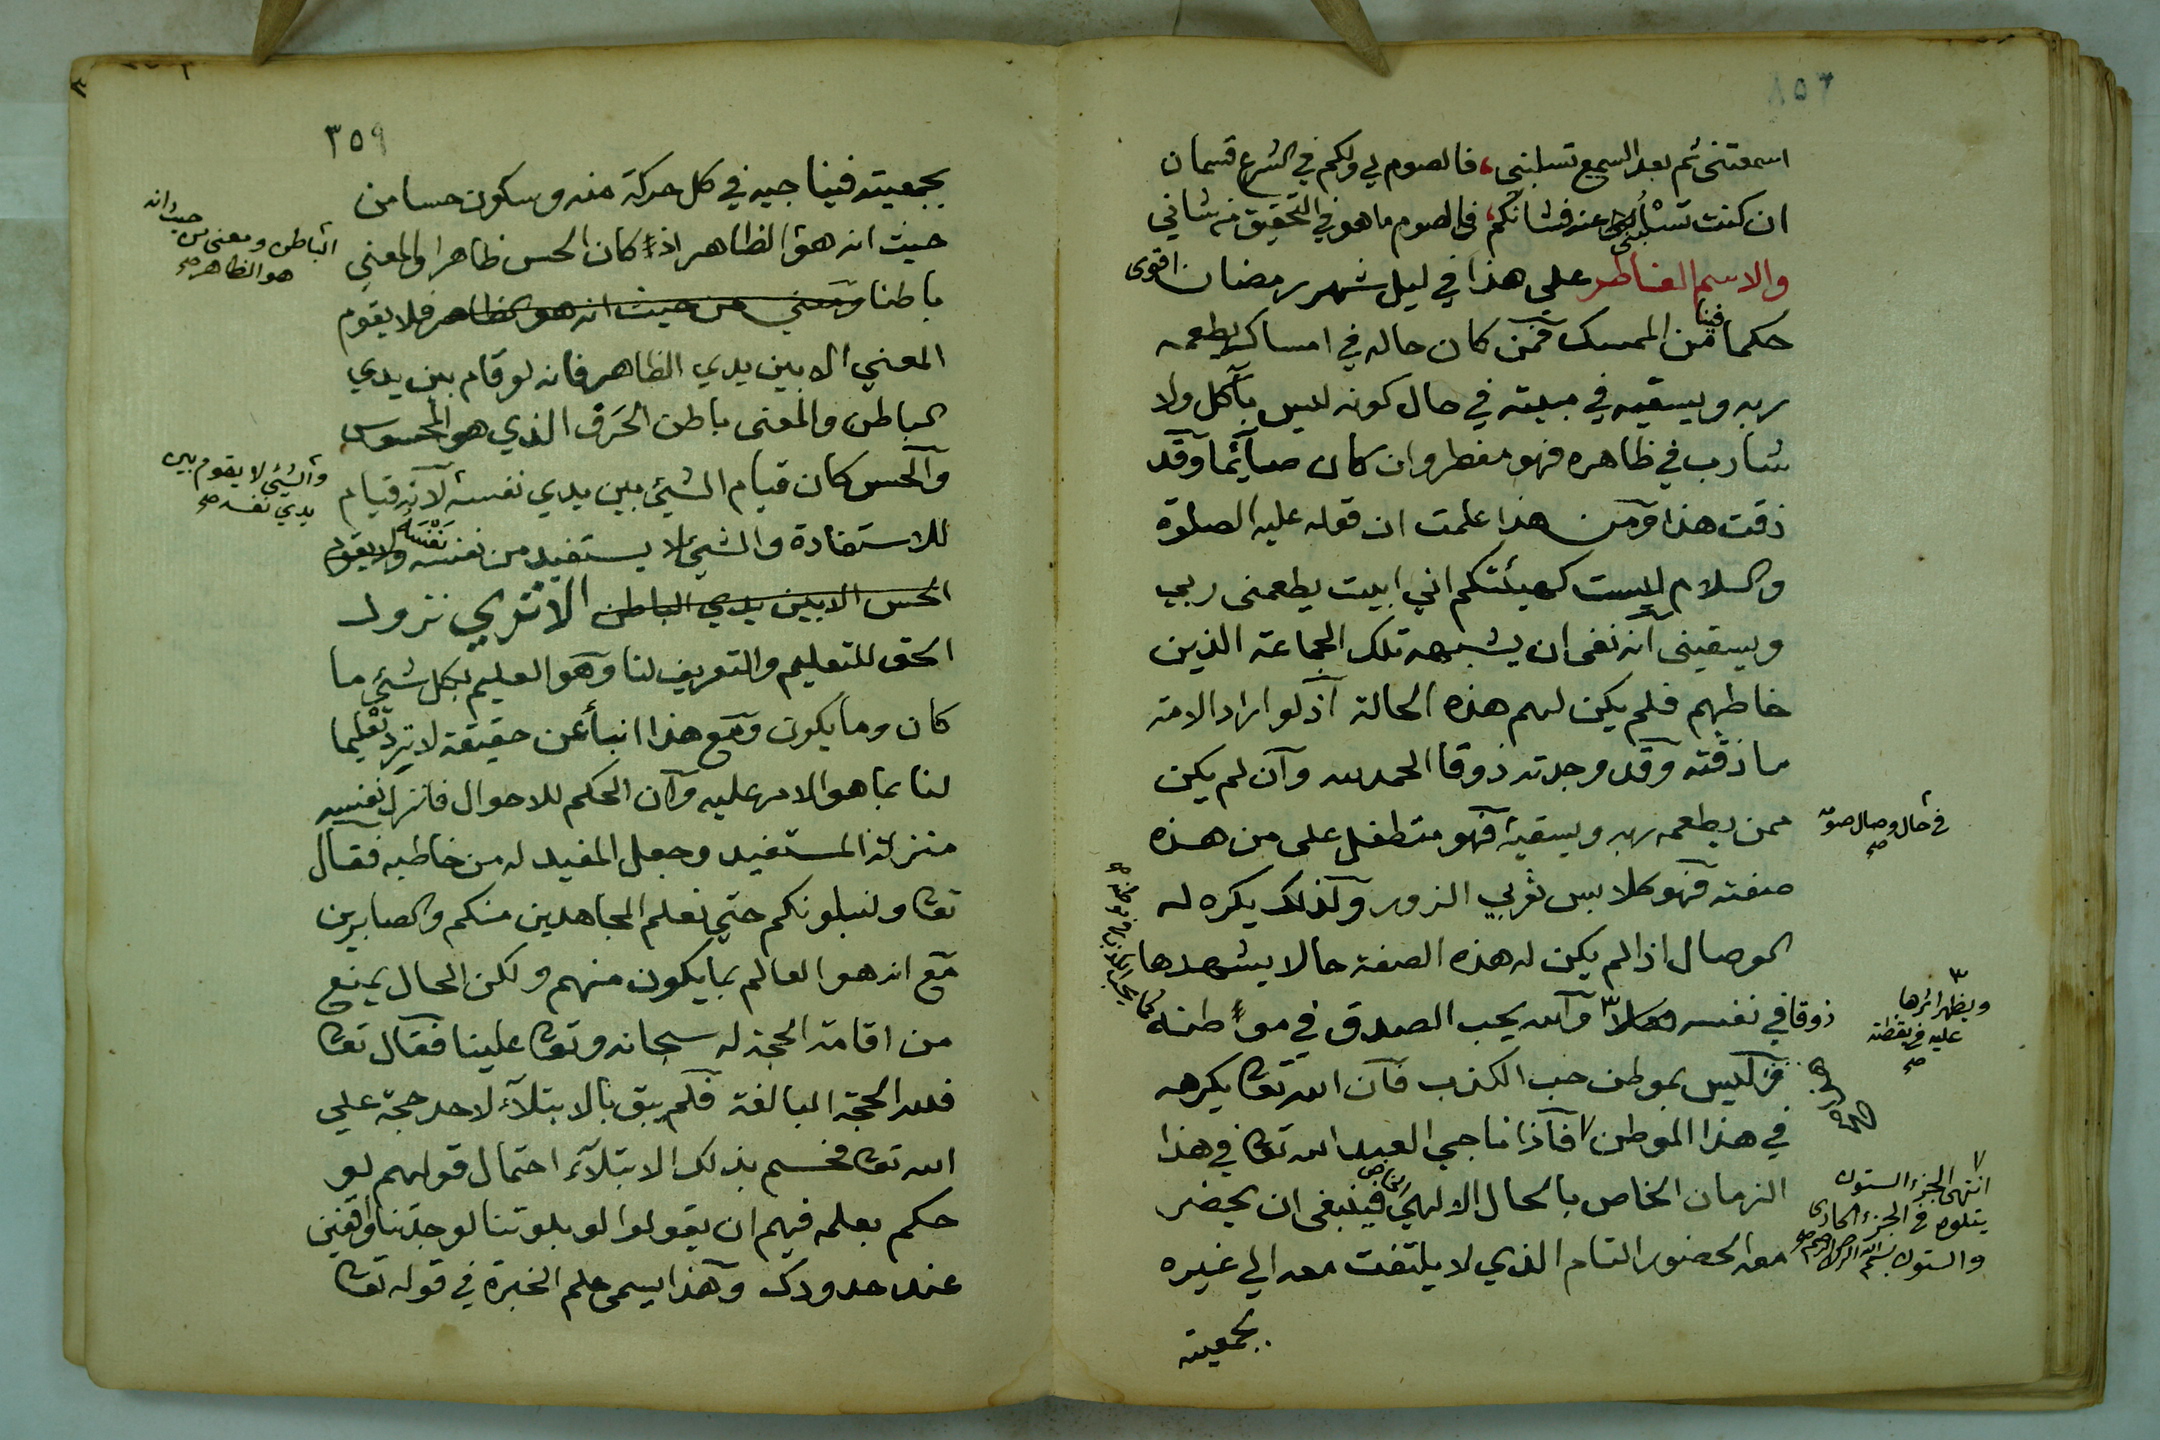 ٨٥٣
اسمعتنى ثم بعد السمع تسلبنى، فالصوم لي ولكم في الشرع قسمان
ان كنت تسلبنى عنه فشانكم، فى الصوم ما هو في التحقيق من شاني
والاسم الفاطر على هذا في ليل شهر رمضان اقوى
حكما فينا من الممسك فمن كان حاله في امساكه يطعمه
ربه ويسقيه في مبيته في حال كونه ليس بآكل ولا
شارب في ظاهره فهو مفطر وان كان صآئما وقد
ذقت هذا ومن هذا علمت ان قوله عليه الصلوة
والسلام لست كهيئتكم اني ابيت يطعمنى ربي
ويسقينى انه نفى ان يشبهه تلك الجماعة الذين
خاطبهم فلم يكن لهم هذه الحالة اذ لو اراد الامة
ما ذقته وقد وجدته ذوقا الحمد لله وان لم يكن
ممن يطعمه ربه ويسقيه فهو متطفل على من هذه
في حال وصال صومه صح
صفته فهو كلابس ثوبي الزور ولذلك يكره له
الوصال اذا لم يكن له هذه الصفة حالا يشهدها
ذوقا في نفسه والله يحب الصدق في موطنه كما
ويظهر اثرها
عليه في يقظته
صح
فليس بموطن حب الكذب فان الله تعا يكرهه
في هذا الموطن فاذا ناجى العبد الله تعا في هذا
الزمان الخاص بالحال الالهي الخاص فينبغى ان يحضر
معه الحضور التام الذي لا يلتفت معه الي غيره
انتهى الجزء الستون
يتلوه في الجزء الحادى
والستون بسم الله الرحمن الرحيم صح
بجمعيته
٣٥٩
بجمعيته فيناجيه في كل حركة منه وسكون حسا من
حيث انه هو الظاهر اذ كان الحس ظاهرا والمعني
الباطن ومعنى من حيث انه
هو الظاهر صح
باطنا ومعني من حيث انه هو الظاهر فلا يقوم
المعني الا بين يدي الظاهر فانه لو قام بين يدي
الباطن والمعنى باطن الحرف الذي هو المحسوس
والحس كان قيام الشيئ بين يدي نفسه لانه قيام
والشيئ لا يقوم بين
يدي نفسه صح
للاستفادة والشيئ لا يستفيد من نفسه نفسه ولا يقوم
الحس الا بين يدي الباطن الا تري نزول
الحق للتعليم والتعريف لنا وهو العليم بكل شيئ ما
كان وما يكون ومع هذا انبأ عن حقيقة لا ترد تعليما
لنا بما هو الامر عليه وان الحكم للاحوال فانزل نفسه
منزلة المستفيد وجعل المفيد له من خاطبه فقال
تعا ولنبلونكم حتي نعلم المجاهدين منكم والصابرين
مع انه هو العالم بما يكون منهم ولكن الحال يمنع
من اقامة الحجة له سبحانه وتعا علينا فقال تعا
فلله الحجة البالغة فلم يبق بالابتلآء لاحد حجة علي
الله تعا فحسم بذلك الابتلآء احتمال قولهم لو
حكم بعلمه فيهم ان يقولوا لو بلوتنا لوجدتنا واقفين
عند حدودك وهذا يسمى علم الخبرة في قوله تعا